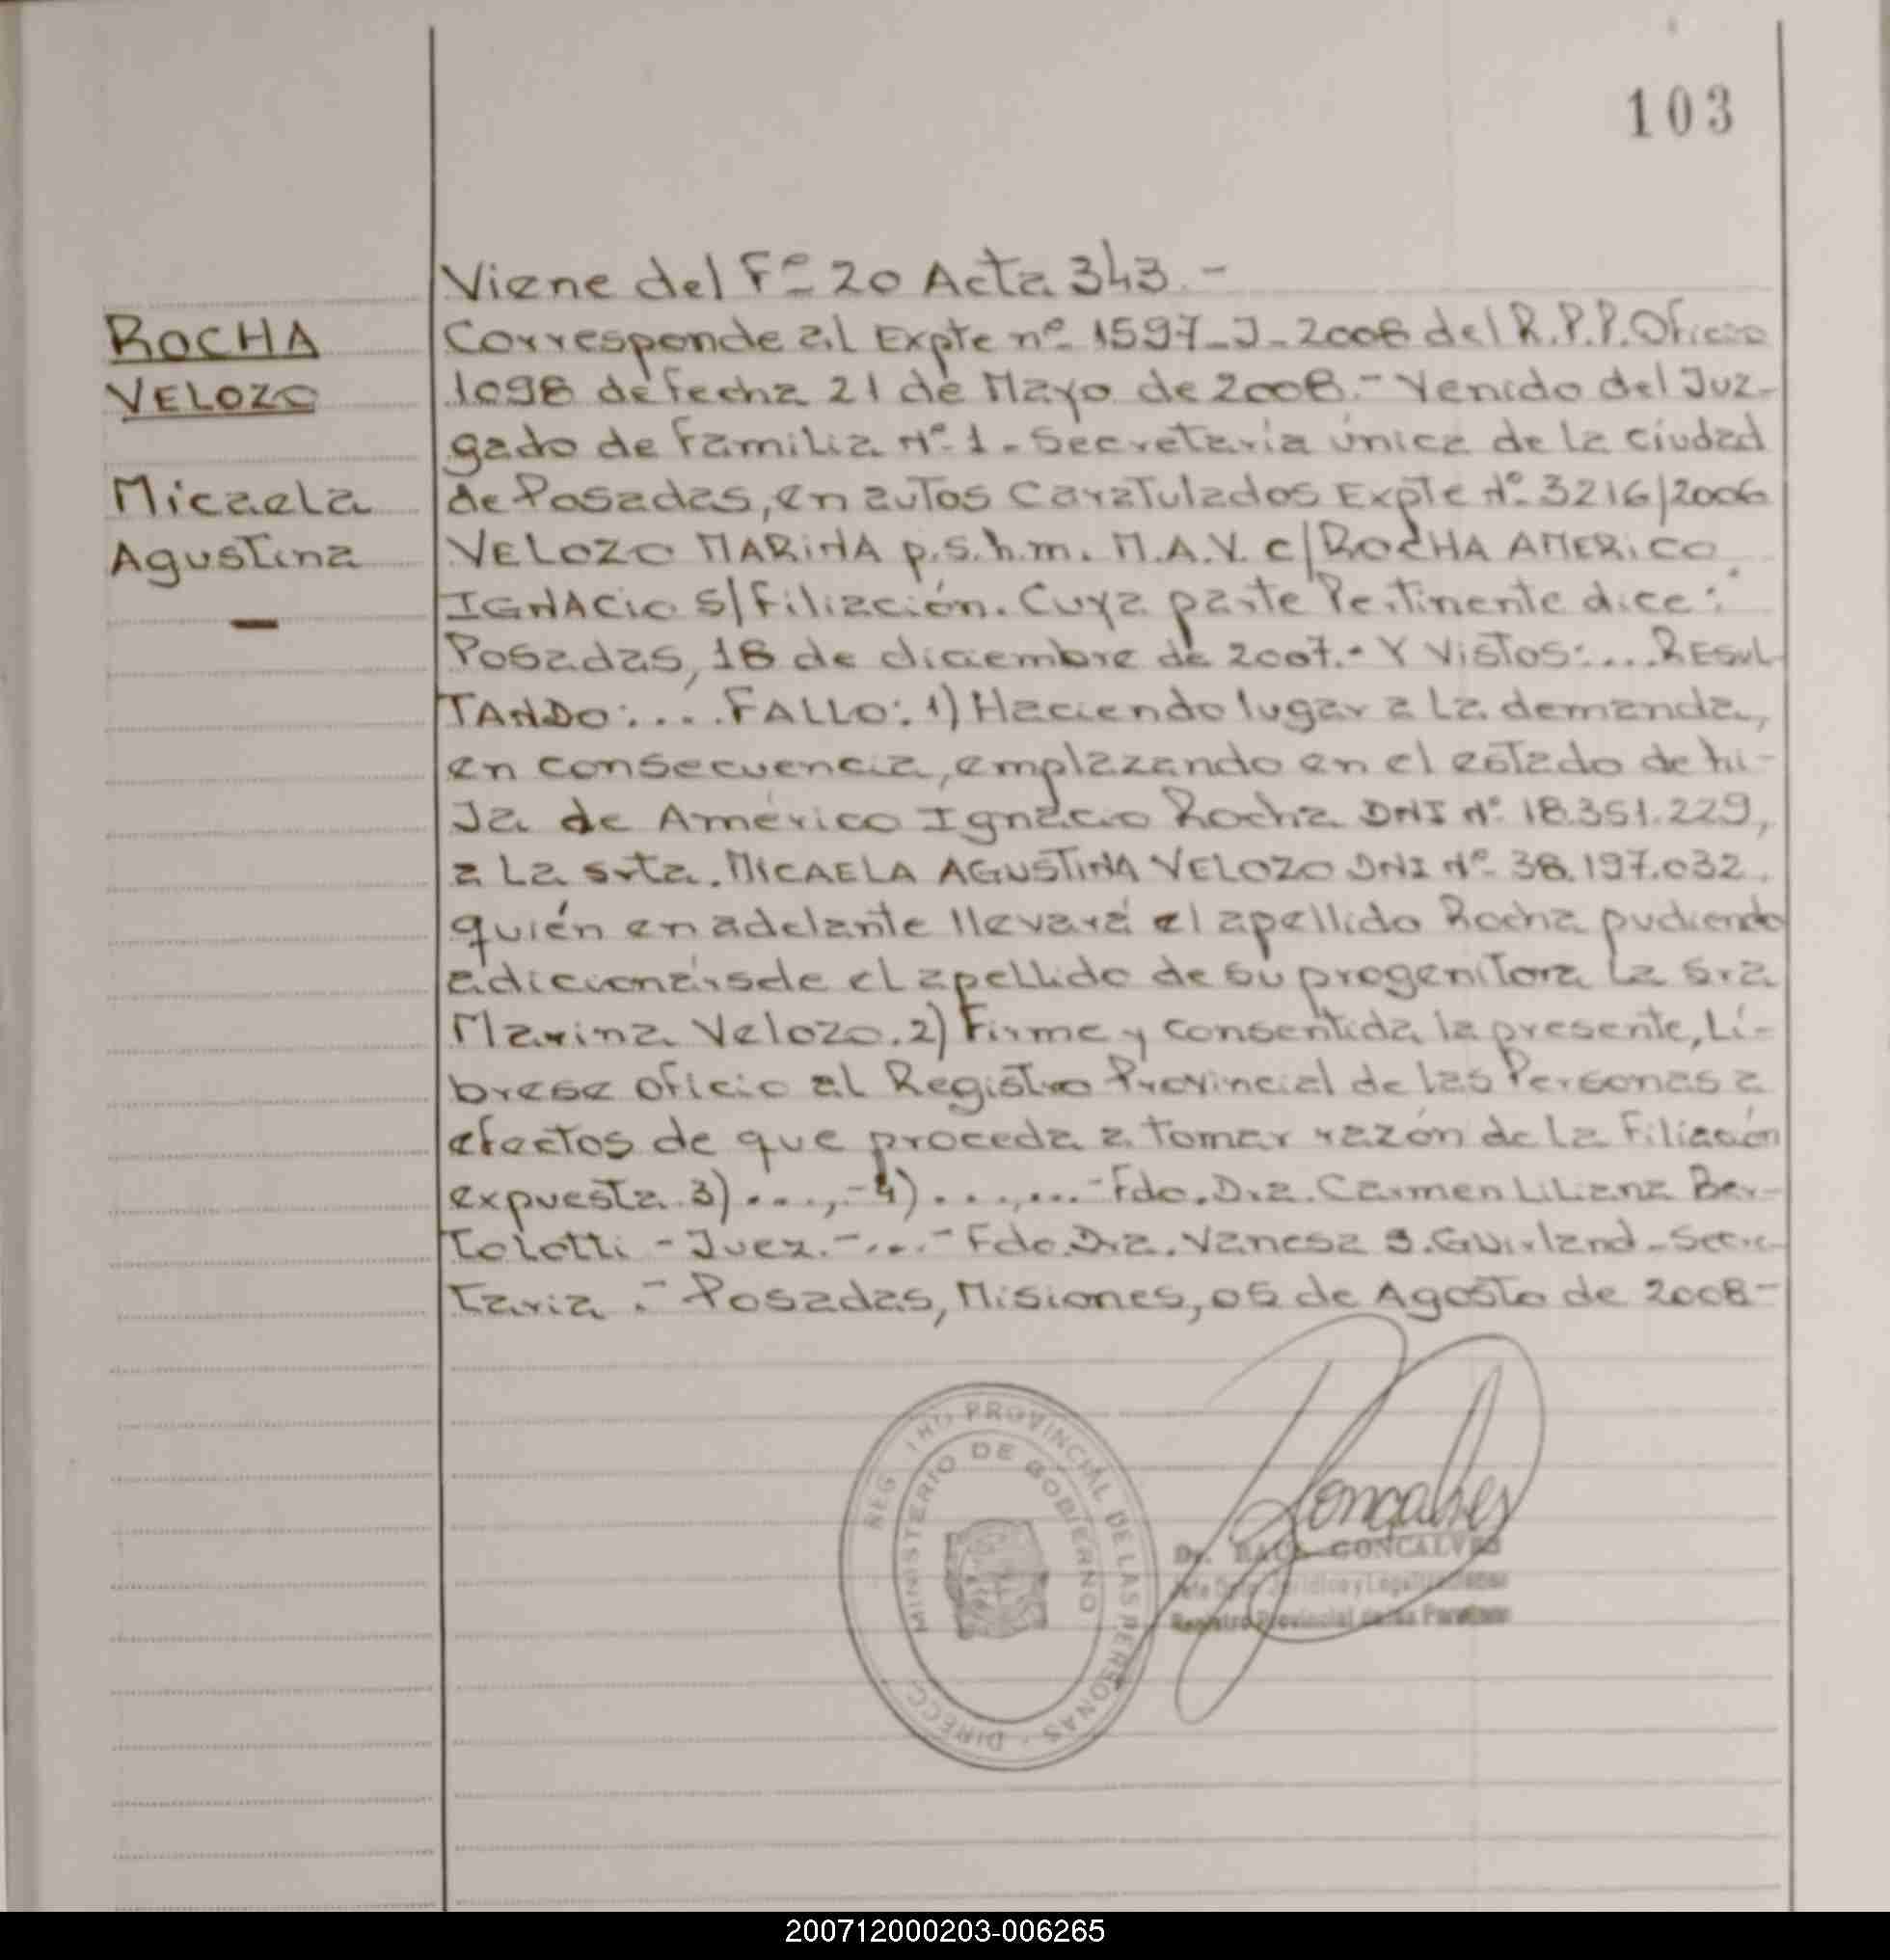 103
Viene del Fº 20 Acta 343.-
ROCHA
VELOZO
Micaela
Agustina
Corresponde al Expte nº 1597-J-2008 del R.P.P. Oficio
1098 de fecha 21 de Mayo de 2008.- Venido del Juz-
gado de Familia Nº 1 - Secretaria única de la ciudad
de Posadas, en autos Caratulados Expte Nº 3216/2006
VELOZO MARINA p.s.h.m. M.A.V. c/ROCHA AMERICO
IGNACIO S/Filiación. Cuya parte Pertinente dice:"
Posadas, 18 de diciembre de 2007.- Y VISTOS:....RESUL
TANDO:.... FALLO: 1) Haciendo lugar a la demanda,
en consecuencia, emplazando en el estado de hi-
Ja de Américo Ignacio Rocha DNI Nº 18.351.229,
a la srta. MICAELA AGUSTINA VELOZO DNI Nº 38.197.032,
quién en adelante llevará el apellido Rocha pudiendo
adicionársele el apellido de su progenitora la Sra
Marina Velozo. 2) Firme y consentida la presente, Lí-
brese oficio al Registro Provincial de las Personas a
efectos de que proceda a tomar razón de la Filiación
expuesta 3)....,-4)....,...-Fdo. Dra. Carmen Liliana Ber-
tolotti - Juez.-...- Fdo. Dra. Vanesa S. Guirland - Secre-
taria.- Posadas, Misiones, 05 de Agosto de 2008-
PROVINCIAL DE LAS PERSONAS - DIRECC.
MINISTERIO DE GOBIERNO
Goncalves
Dr. RAUL GONCALVES
Jefe Dpto. Jurídico y Legalizaciones
Registro Provincial de las Personas
200712000203-006265